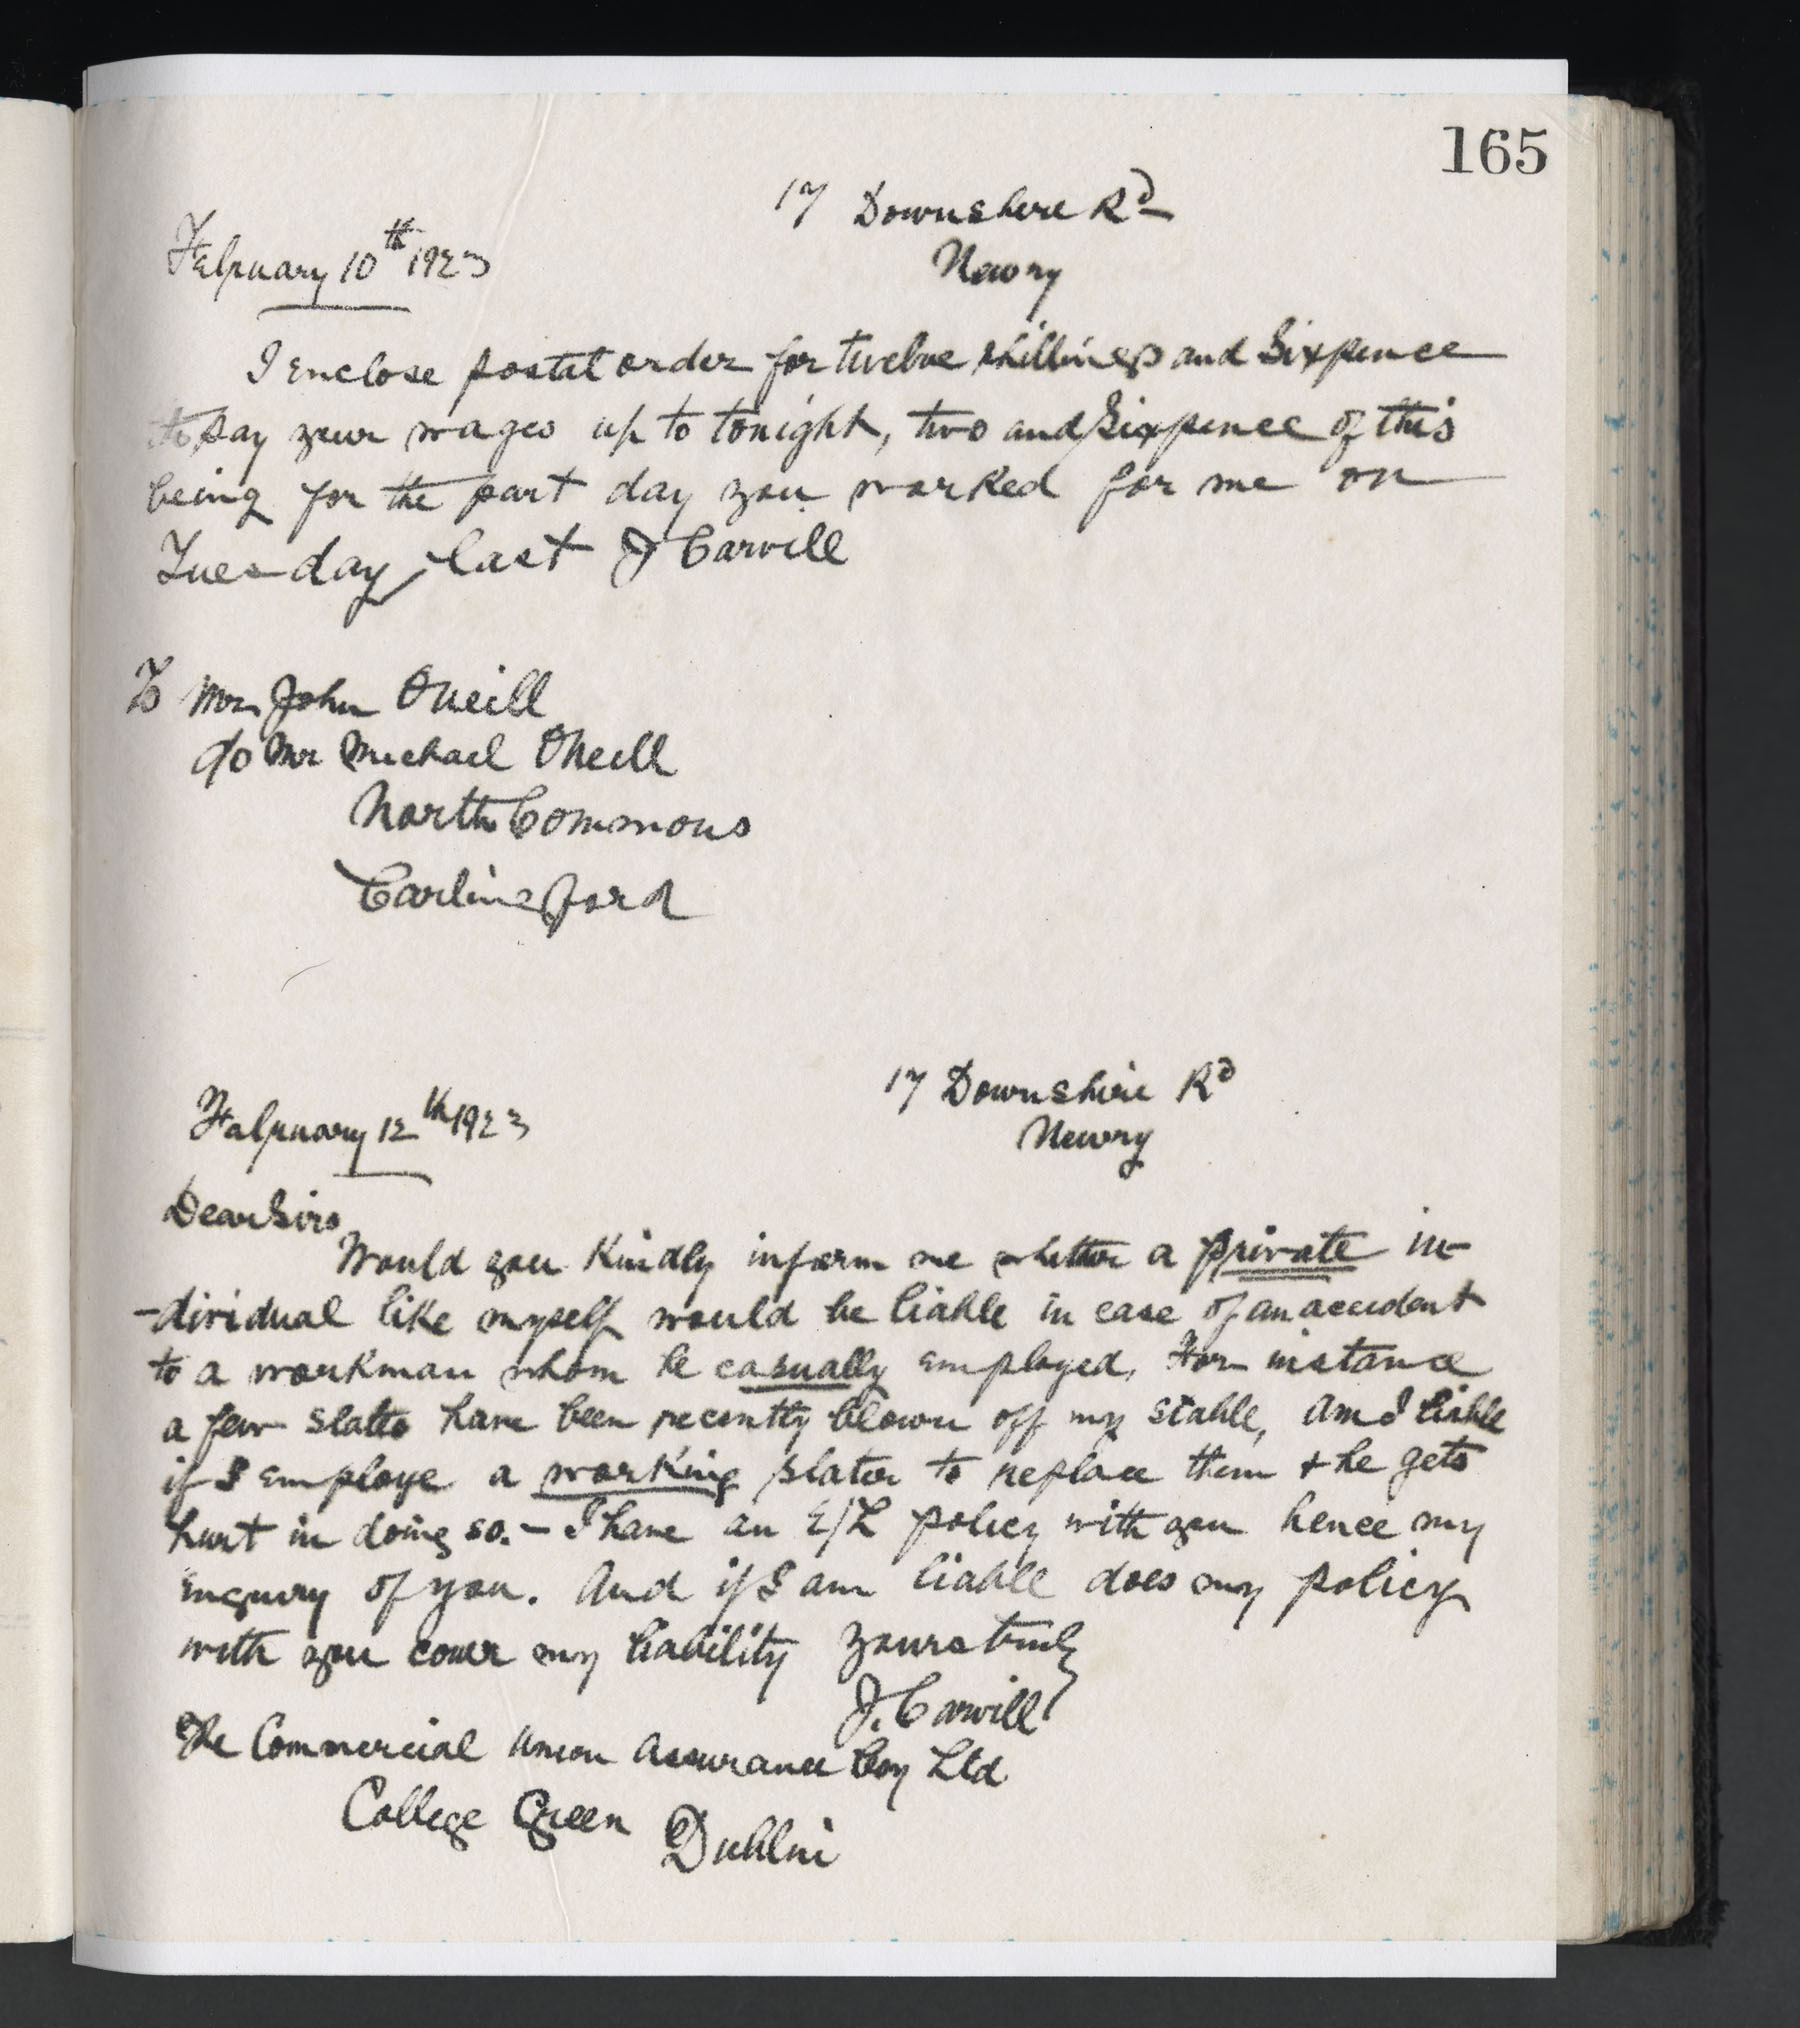 165
17 Downshire Rd
February 10th 1923
Newry
I Enclose postal order for twelve shillings and Sixpence
to pay your wages up to tonight, two and Sixpence of this
being for the part day you worked for me on
Tuesday last J Carvill
To Mr John ONeill
c/o Mr Michael ONeill
North Commons
Carlingford
17 Downshire Rd
February 12th 1923
Newry
Dear Sirs
Would you Kindly inform me whether a private in-
-dividual like myself would be liable in case of an accident
to a workman whom he casually employed. For instance
a few slates have been recently blown off my stable, am I liable
if I employe a working slater to replace them + he gets
hurt in doing so. - I have an E/L policy with you hence my
Enquiry of you. And if I am liable does my policy
with you cover my liability yours truly
J. Carvill
The Commercial Union Assurance Coy Ltd
College Green
Dublin